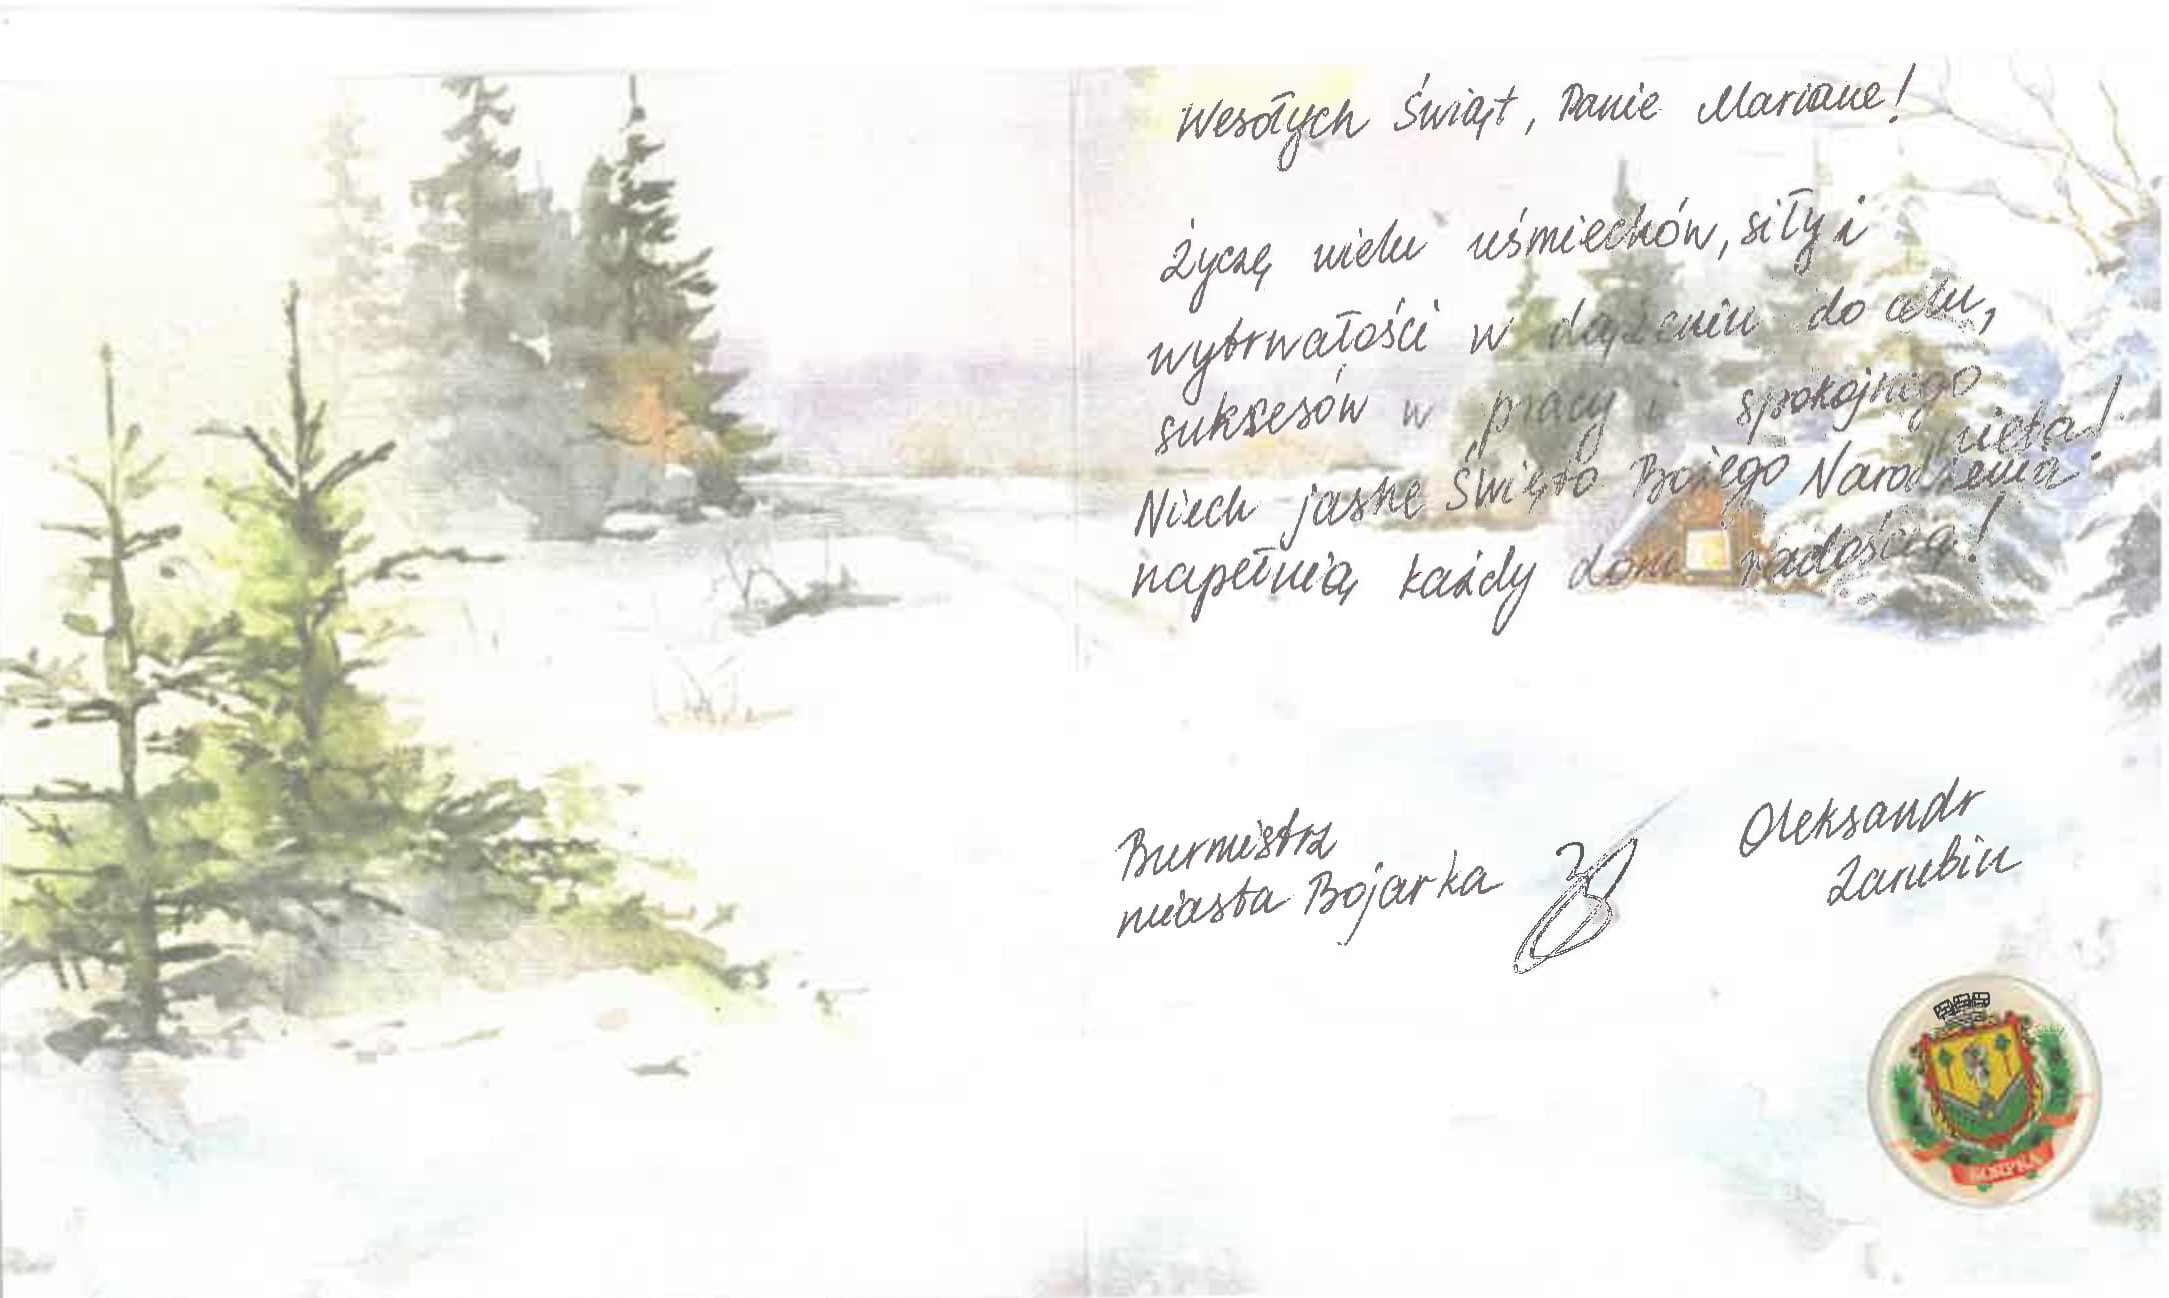 Wesołych Świąt, Panie Mariane!
Życzę wielu uśmiechów, siły i
wytrwałości w dążeniu do celu,
sukcesów w pracy i spokojnego
nieba!
Niech jasne Święto Bożego Narodzenia
napełnią każdy dom radością!
Burmistrz
miasta Bojarka
Oleksandr
Zarubin
БОЯРКА